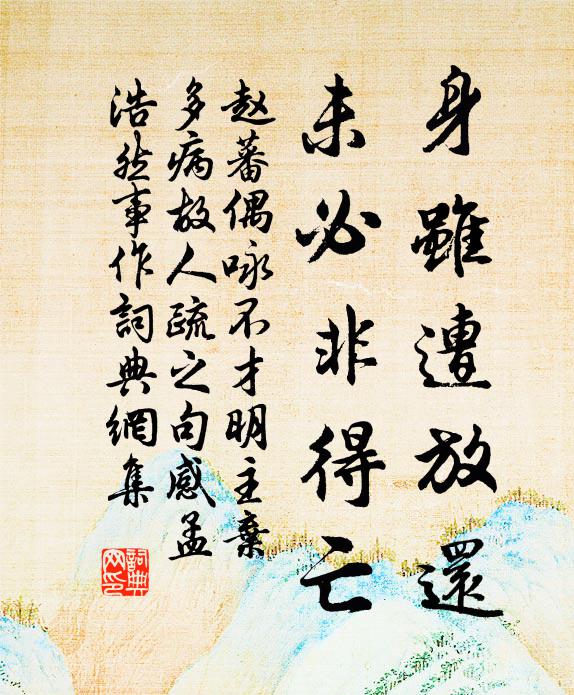 身雖遭放還
未必非得亡
赵蕃偶咏不才明主棄
多病故人疏之句感孟
浩然事作詞典網集
詞典